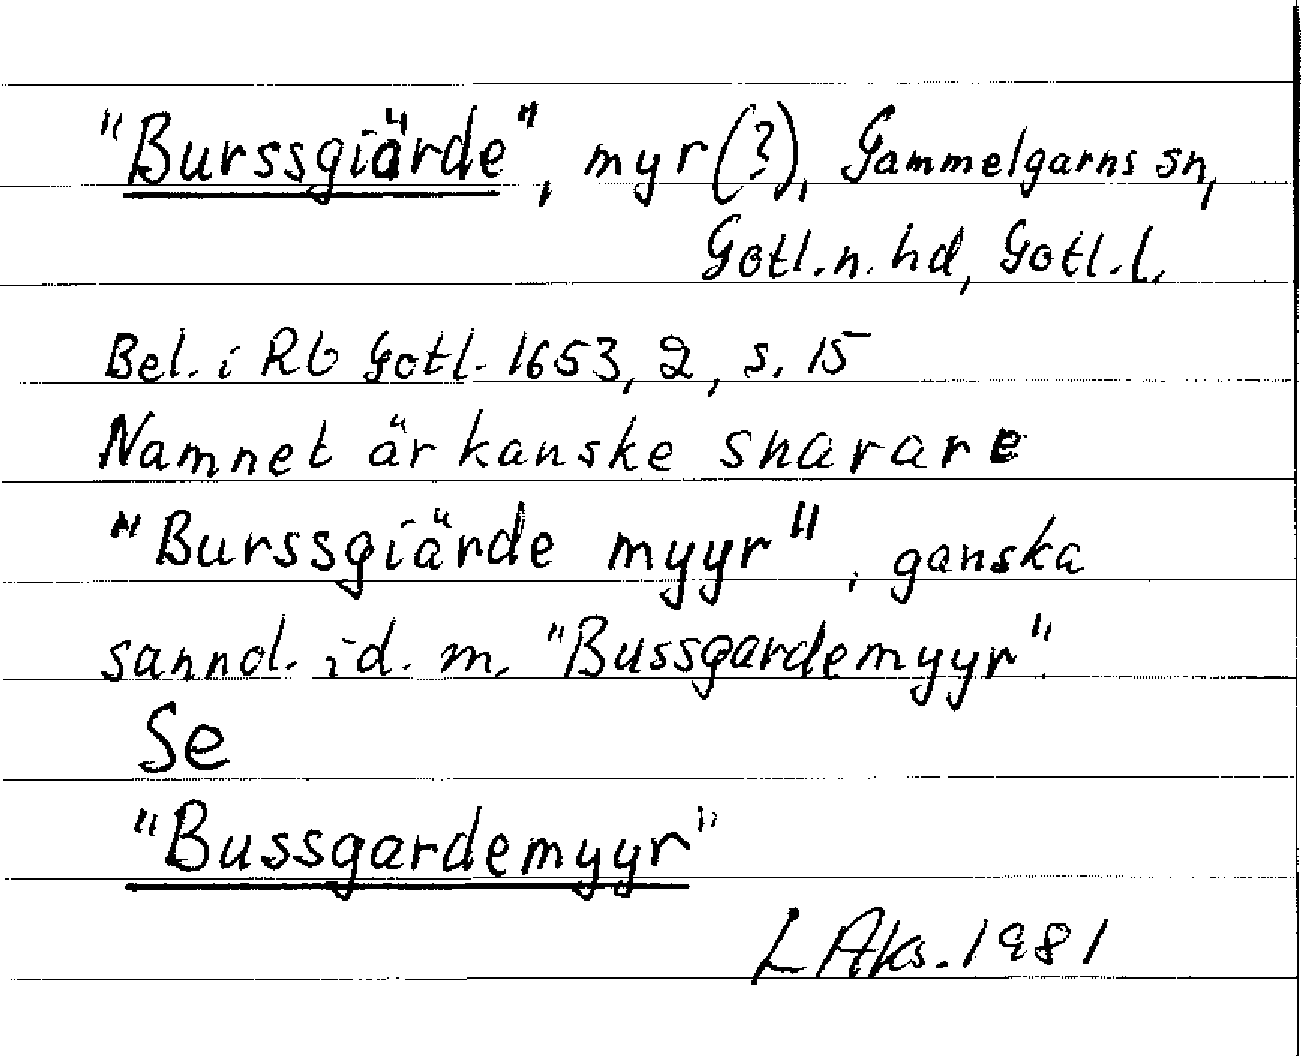 "Burssgiärde", myr(?), Gammelgarns sn,
Gotl. n. hd, Gotl. l.
Bel. i Rb Gotl. 1653, 2, s. 15
Namnet är kanske snarare
"Burssgiärde myyr", ganska
sannol. id. m. "Bussgardemyyr".
Se
"Bussgardemyyr"
L Aks. 1981